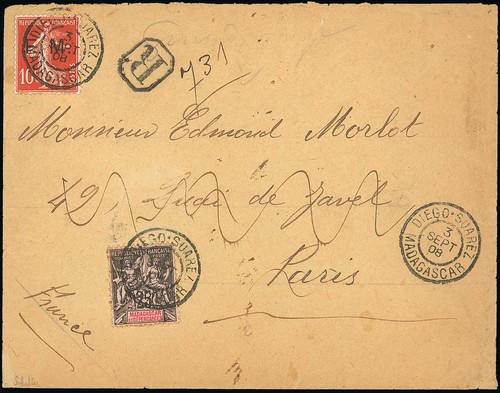 RÉPUBLIQUE FRANÇAISE
10
M
DIEGO-SUAREZ
3
SEPT
08
MADAGASCAR
R
731
Monsieur Edmond Morlot
42, Quai de Javel
Paris
France
RÉPUBLIQUE FRANÇAISE
MADAGASCAR
ET DÉPENDANCES
DIEGO-SUAREZ
DIEGO-SUAREZ
3
SEPT
08
MADAGASCAR